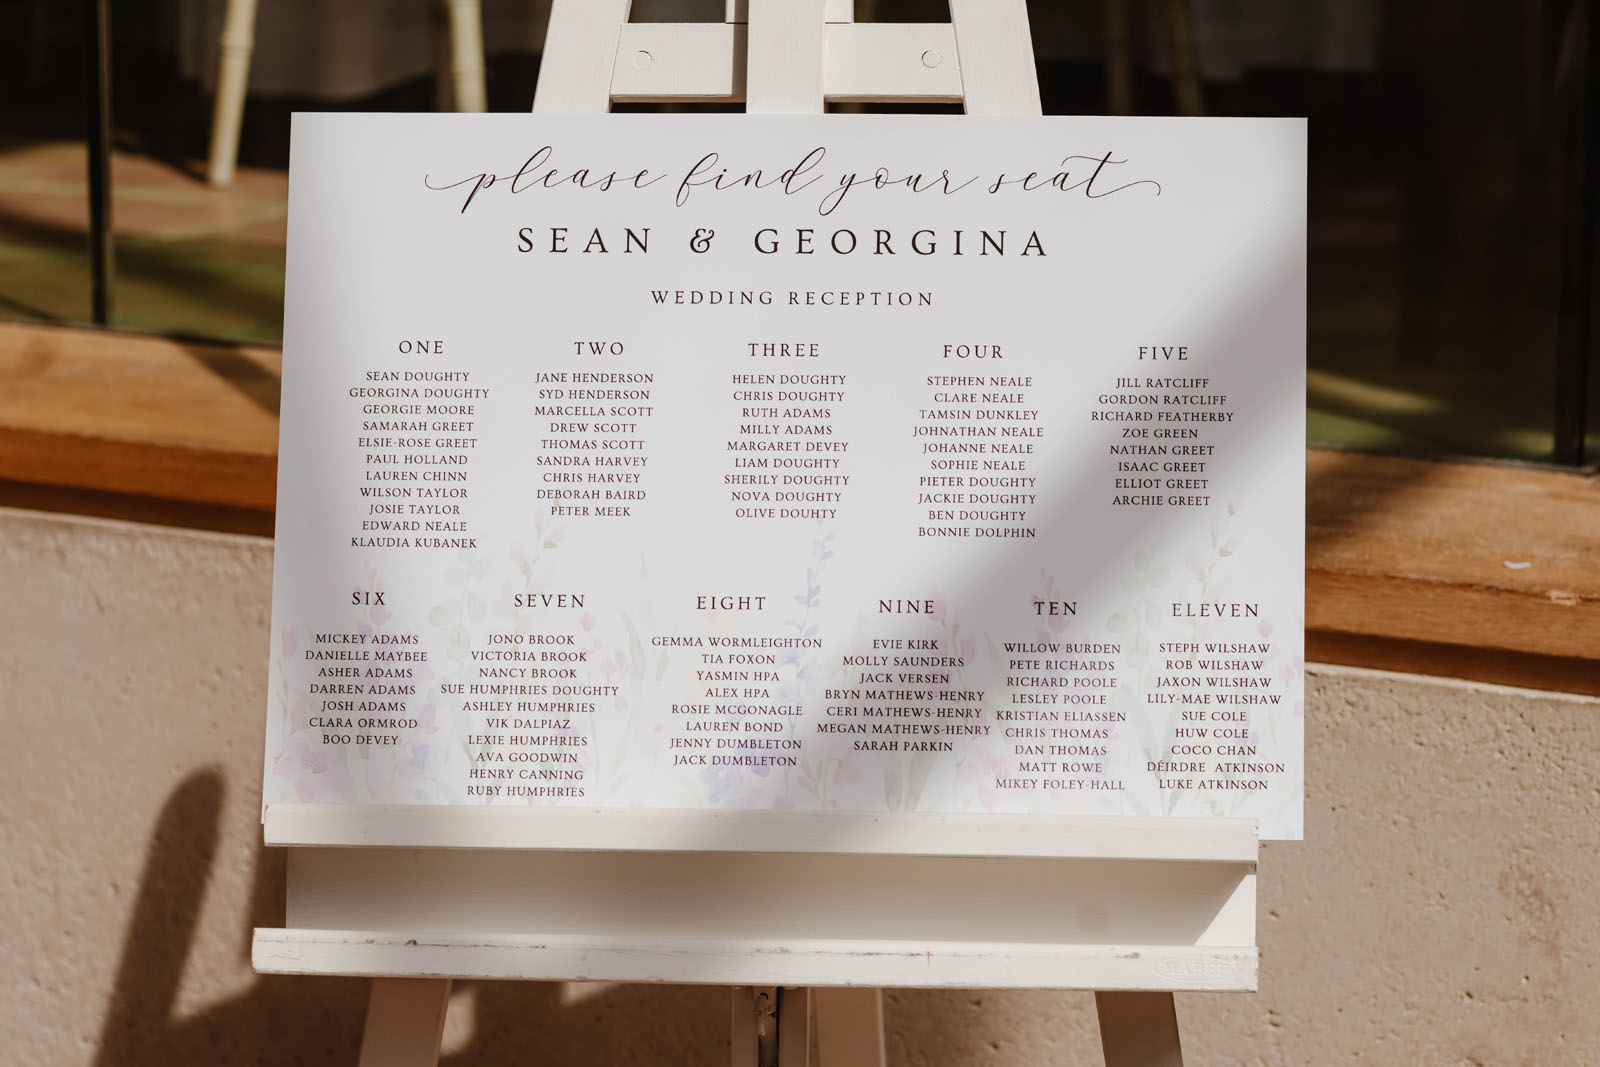 please find your seat
SEAN & GEORGINA
WEDDING RECEPTION
ONE
SEAN DOUGHTY
GEORGINA DOUGHTY
GEORGIE MOORE
SAMARAH GREET
ELSIE-ROSE GREET
PAUL HOLLAND
LAUREN CHINN
WILSON TAYLOR
JOSIE TAYLOR
EDWARD NEALE
KLAUDIA KUBANEK
TWO
JANE HENDERSON
SYD HENDERSON
MARCELLA SCOTT
DREW SCOTT
THOMAS SCOTT
SANDRA HARVEY
CHRIS HARVEY
DEBORAH BAIRD
PETER MEEK
THREE
HELEN DOUGHTY
CHRIS DOUGHTY
RUTH ADAMS
MILLY ADAMS
MARGARET DEVEY
LIAM DOUGHTY
SHERILY DOUGHTY
NOVA DOUGHTY
OLIVE DOUHTY
FOUR
STEPHEN NEALE
CLARE NEALE
TAMSIN DUNKLEY
JOHNATHAN NEALE
JOHANNE NEALE
SOPHIE NEALE
PIETER DOUGHTY
JACKIE DOUGHTY
BEN DOUGHTY
BONNIE DOLPHIN
FIVE
JILL RATCLIFF
GORDON RATCLIFF
RICHARD FEATHERBY
ZOE GREEN
NATHAN GREET
ISAAC GREET
ELLIOT GREET
ARCHIE GREET
SIX
MICKEY ADAMS
DANIELLE MAYBEE
ASHER ADAMS
DARREN ADAMS
JOSH ADAMS
CLARA ORMROD
BOO DEVEY
SEVEN
JONO BROOK
VICTORIA BROOK
NANCY BROOK
SUE HUMPHRIES DOUGHTY
ASHLEY HUMPHRIES
VIK DALPIAZ
LEXIE HUMPHRIES
AVA GOODWIN
HENRY CANNING
RUBY HUMPHRIES
EIGHT
GEMMA WORMLEIGHTON
TIA FOXON
YASMIN HPA
ALEX HPA
ROSIE MCGONAGLE
LAUREN BOND
JENNY DUMBLETON
JACK DUMBLETON
NINE
EVIE KIRK
MOLLY SAUNDERS
JACK VERSEN
BRYN MATHEWS-HENRY
CERI MATHEWS-HENRY
MEGAN MATHEWS-HENRY
SARAH PARKIN
TEN
WILLOW BURDEN
PETE RICHARDS
RICHARD POOLE
LESLEY POOLE
KRISTIAN ELIASSEN
CHRIS THOMAS
DAN THOMAS
MATT ROWE
MIKEY FOLEY-HALL
ELEVEN
STEPH WILSHAW
ROB WILSHAW
JAXON WILSHAW
LILY-MAE WILSHAW
SUE COLE
HUW COLE
COCO CHAN
DÉIRDRE ATKINSON
LUKE ATKINSON
MABEF